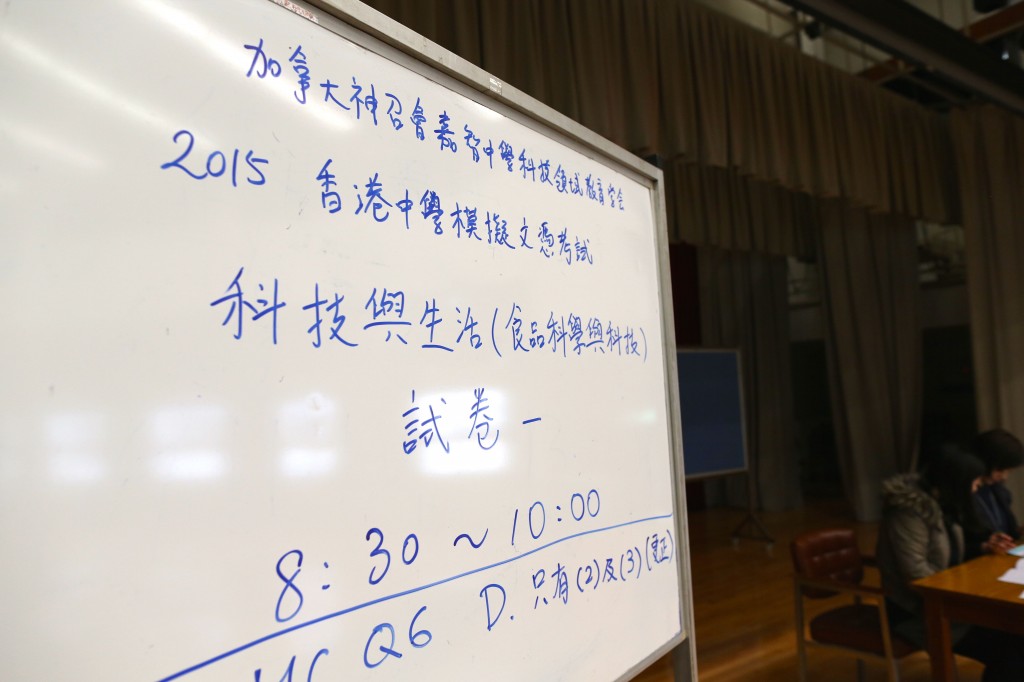 加拿大神召會嘉智中學科技領域教育學會
2015 香港中學模擬文憑考試
科技與生活(食品科學與科技)
試卷一
8:30 ~ 10:00
MC Q6 D. 只有(2)及(3)(更正)